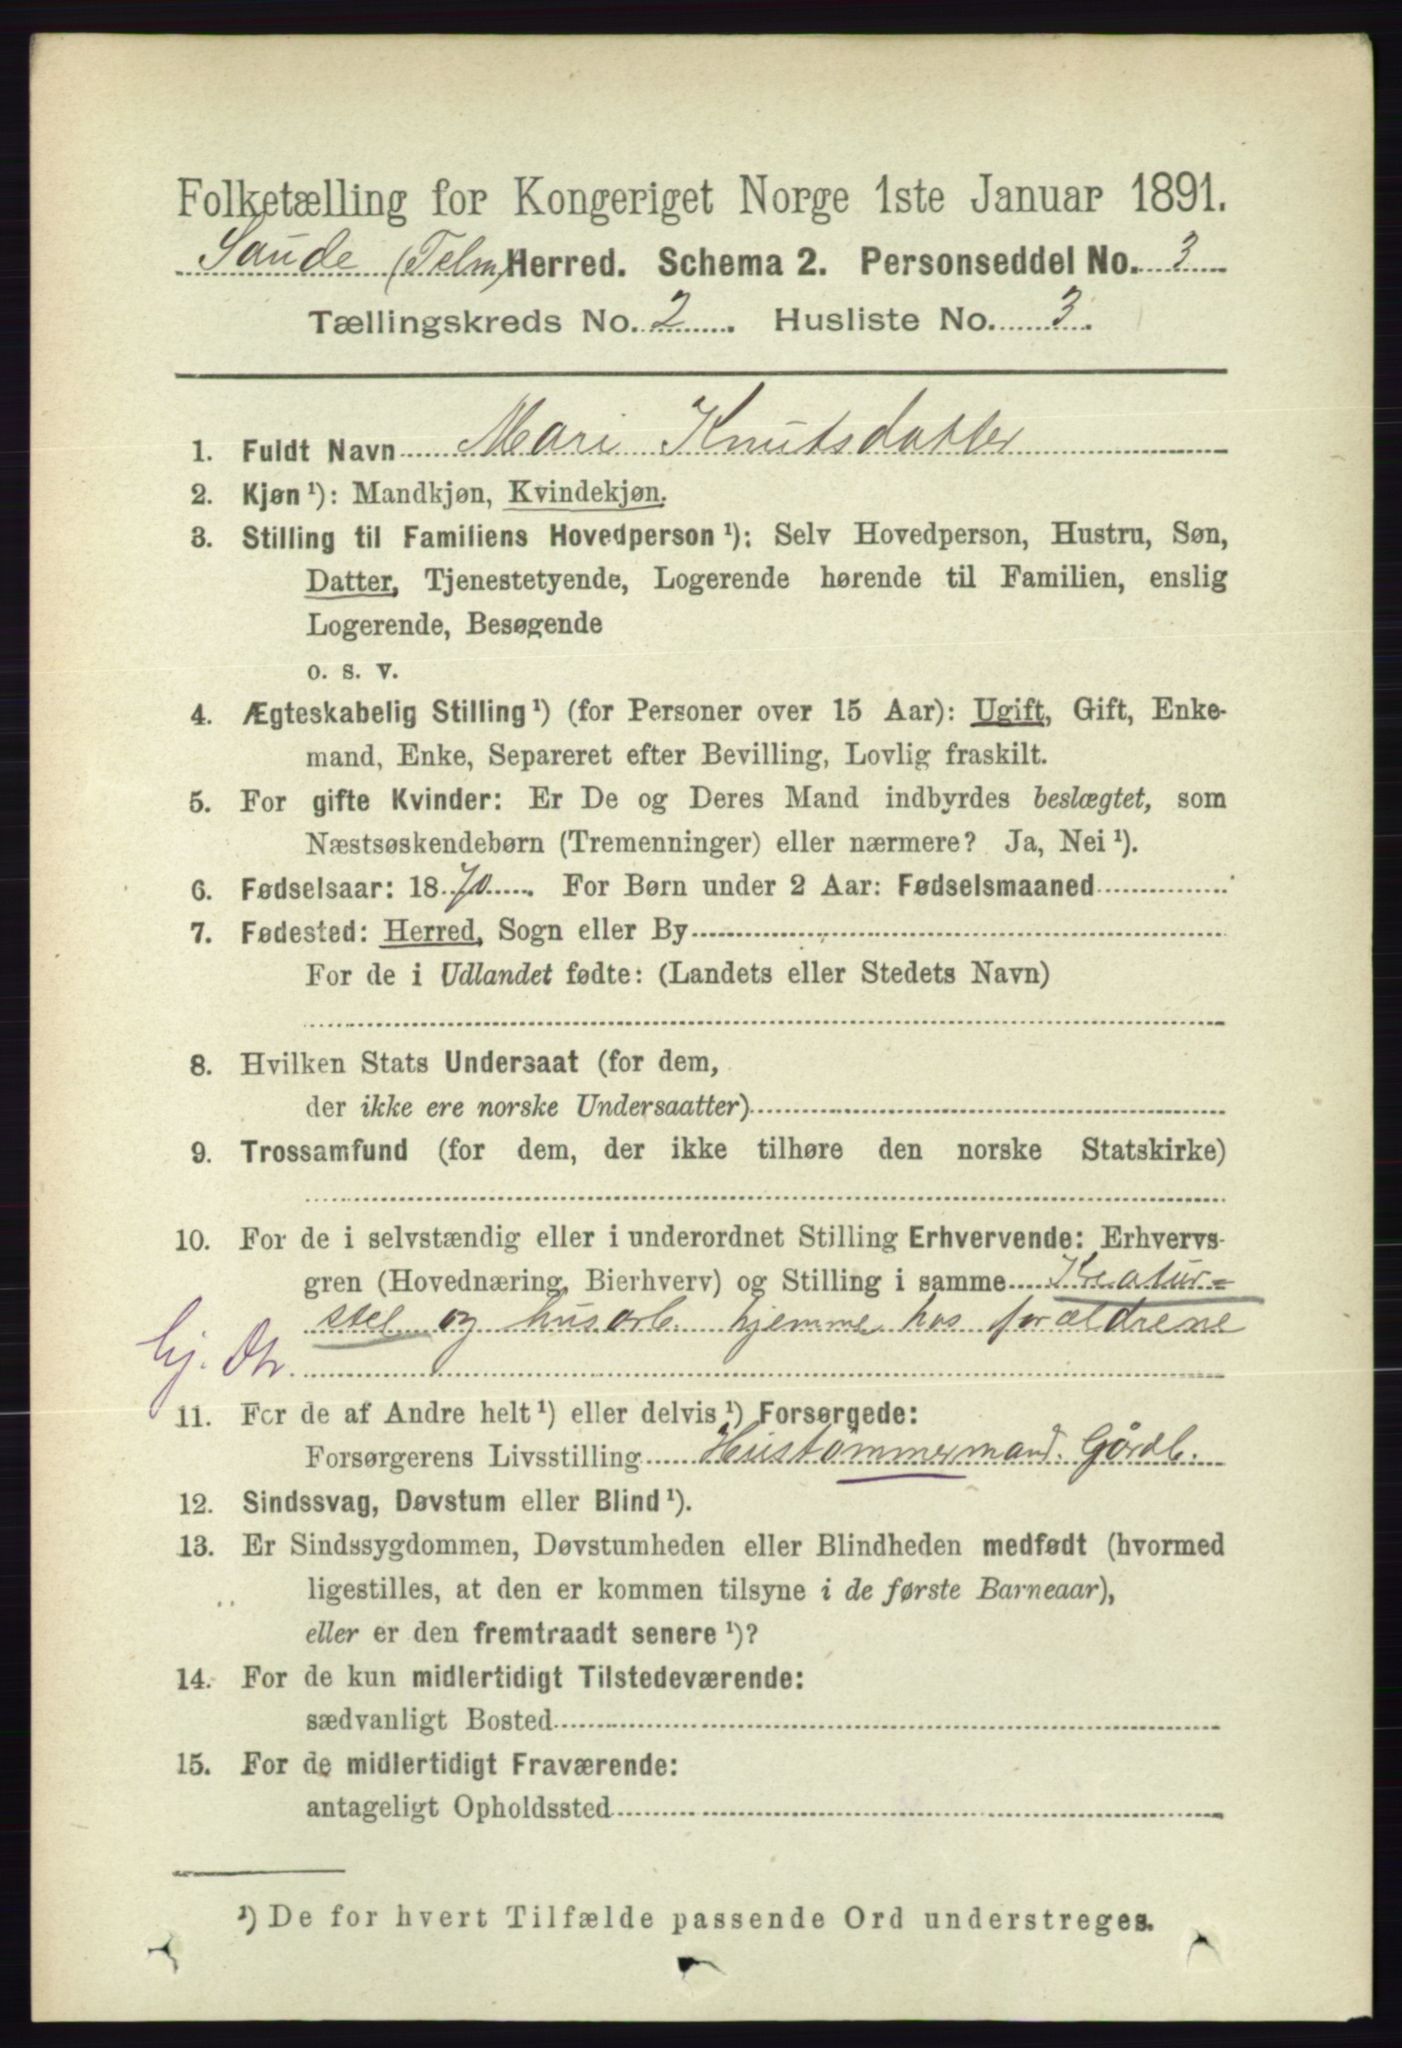 Folketælling for Kongeriget Norge 1ste Januar 1891.
Saude (Telm) Herred. Schema 2. Personseddel No. 3
Tællingskreds No. 2. Husliste No. 3.
1. Fuldt Navn Mari Knutsdatter
2. Kjøn ¹): Mandkjøn, Kvindekjøn.
3. Stilling til Familiens Hovedperson ¹): Selv Hovedperson, Hustru, Søn,
Datter, Tjenestetyende, Logerende hørende til Familien, enslig
Logerende, Besøgende
o. s. v.
4. Ægteskabelig Stilling ¹) (for Personer over 15 Aar): Ugift, Gift, Enke-
mand, Enke, Separeret efter Bevilling, Lovlig fraskilt.
5. For gifte Kvinder: Er De og Deres Mand indbyrdes beslægtet, som
Næstsøskendebørn (Tremenninger) eller nærmere? Ja, Nei ¹).
6. Fødselsaar: 1870. For Børn under 2 Aar: Fødselsmaaned
7. Fødested: Herred, Sogn eller By
For de i Udlandet fødte: (Landets eller Stedets Navn)
8. Hvilken Stats Undersaat (for dem,
der ikke ere norske Undersaatter)
9. Trossamfund (for dem, der ikke tilhøre den norske Statskirke)
10. For de i selvstændig eller i underordnet Stilling Erhvervende: Erhvervs-
gren (Hovednæring, Bierhverv) og Stilling i samme Kreatur=
stel og husarb. hjemme hos forældrene
hj. Dtr.
11. For de af Andre helt ¹) eller delvis ¹) Forsørgede:
Forsørgerens Livsstilling Hustømmermand. Gårdb.
12. Sindssvag, Døvstum eller Blind ¹).
13. Er Sindssygdommen, Døvstumheden eller Blindheden medfødt (hvormed
ligestilles, at den er kommen tilsyne i de første Barneaar),
eller er den fremtraadt senere ¹)?
14. For de kun midlertidigt Tilstedeværende:
sædvanligt Bosted
15. For de midlertidigt Fraværende:
antageligt Opholdssted
¹) De for hvert Tilfælde passende Ord understreges.